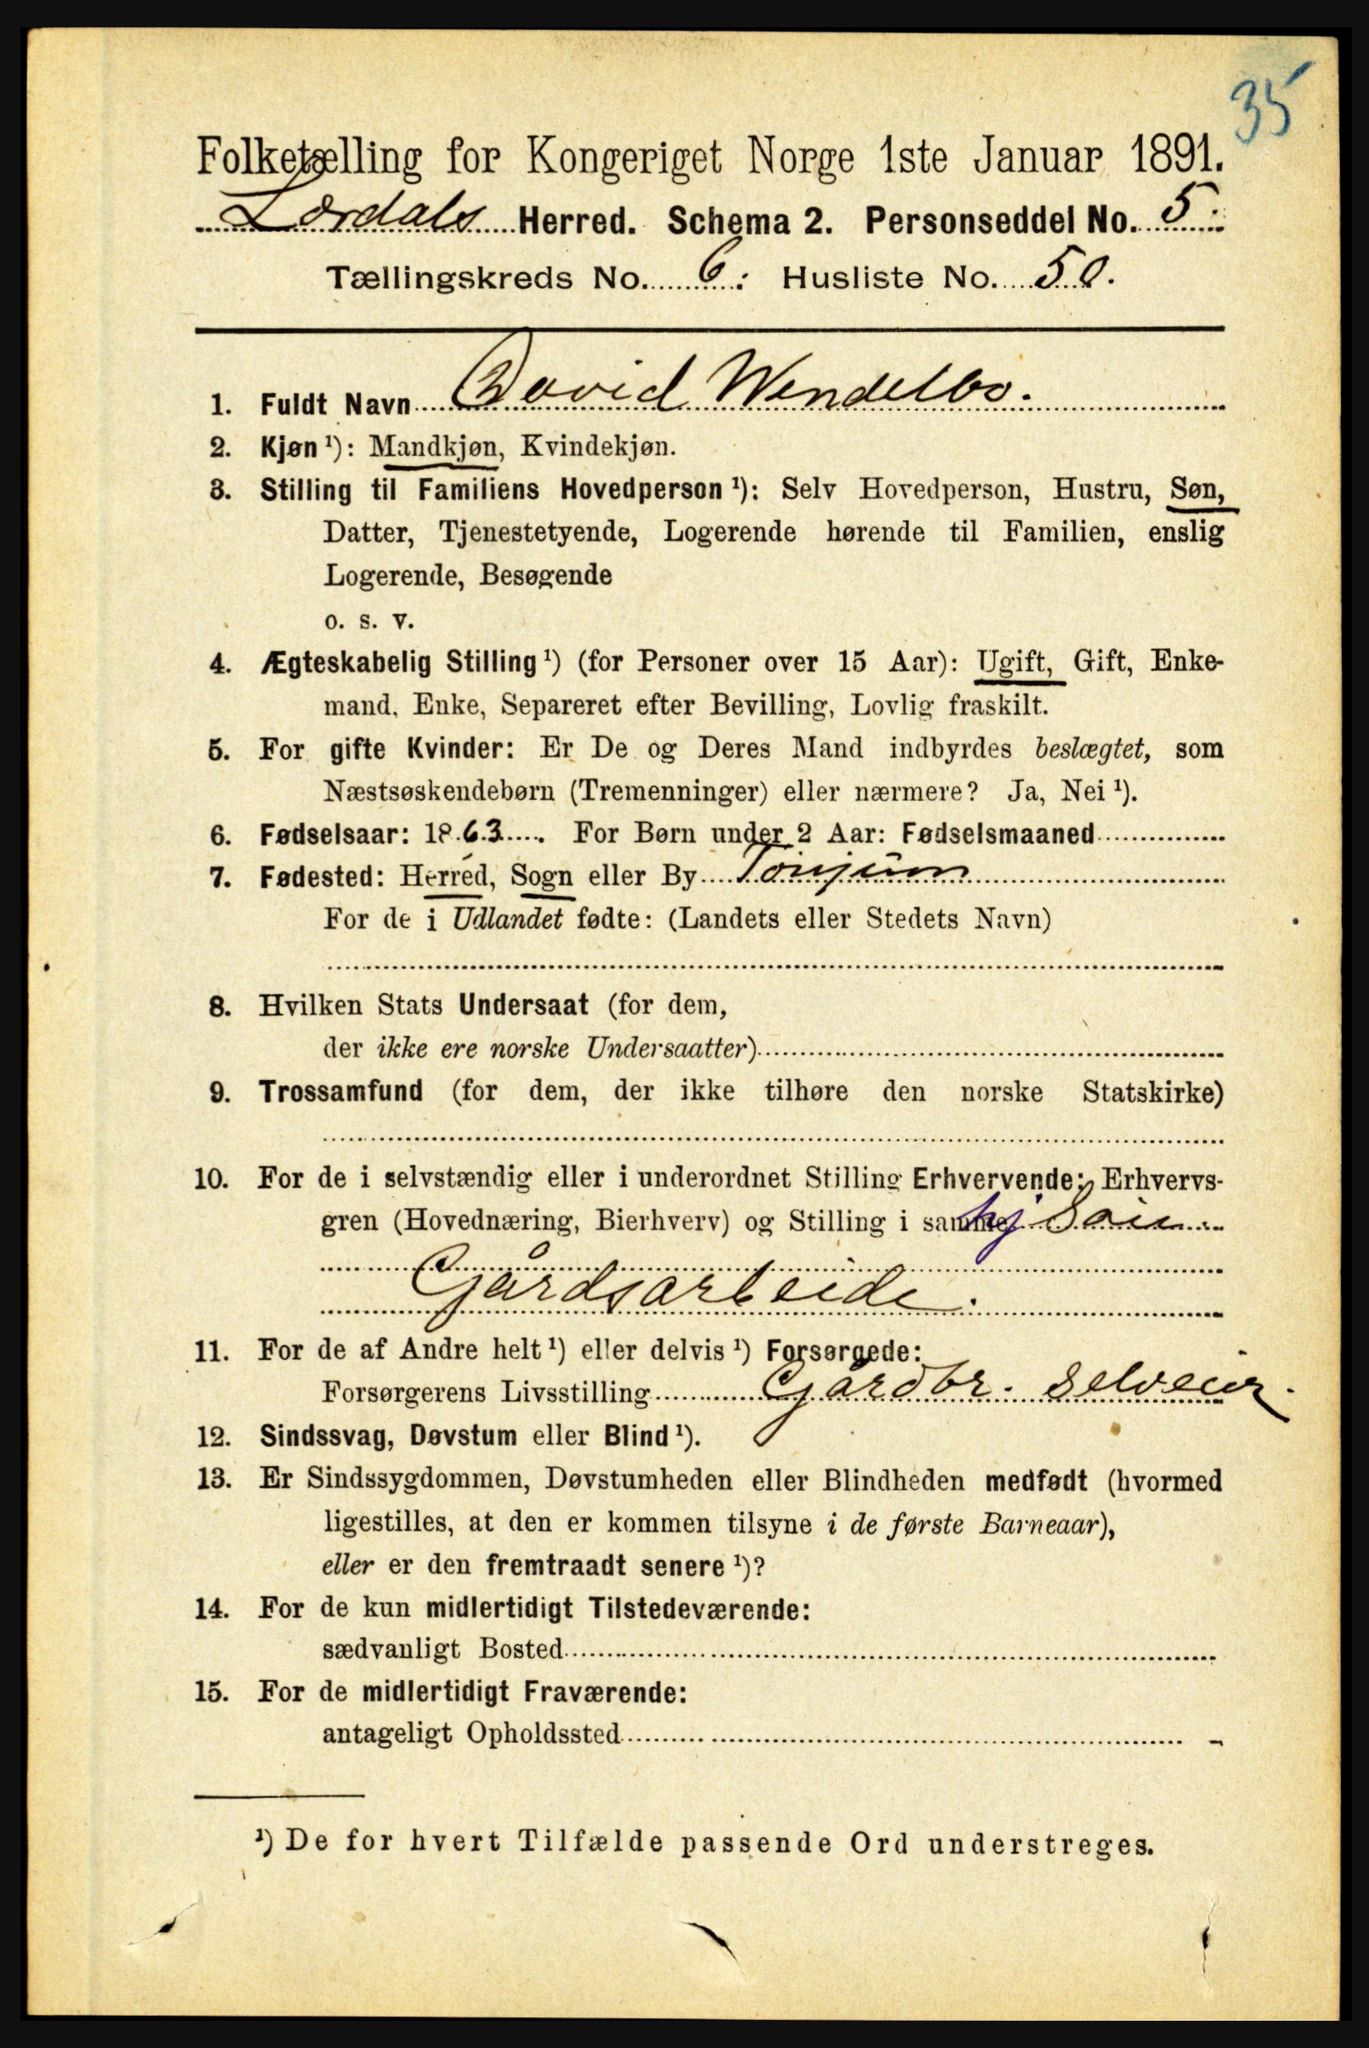 35
Folketælling for Kongeriget Norge 1ste Januar 1891.
Lærdals Herred. Schema 2. Personseddel No. 5.
Tællingskreds No. 6. Husliste No. 50.
1. Fuldt Navn David Wendelbo.
2. Kjøn ¹): Mandkjøn, Kvindekjøn.
3. Stilling til Familiens Hovedperson ¹): Selv Hovedperson, Hustru, Søn,
Datter, Tjenestetyende, Logerende hørende til Familien, enslig
Logerende, Besøgende
o. s. v.
4. Ægteskabelig Stilling ¹) (for Personer over 15 Aar): Ugift, Gift, Enke-
mand, Enke, Separeret efter Bevilling, Lovlig fraskilt.
5. For gifte Kvinder: Er De og Deres Mand indbyrdes beslægtet, som
Næstsøskendebørn (Tremenninger) eller nærmere? Ja, Nei ¹).
6. Fødselsaar: 1863. For Børn under 2 Aar: Fødselsmaaned
7. Fødested: Herred, Sogn eller By Tonjum
For de i Udlandet fødte: (Landets eller Stedets Navn)
8. Hvilken Stats Undersaat (for dem,
der ikke ere norske Undersaatter)
9. Trossamfund (for dem, der ikke tilhøre den norske Statskirke)
10. For de i selvstændig eller i underordnet Stilling Erhvervende: Erhvervs-
gren (Hovednæring, Bierhverv) og Stilling i samme hj
Gårdsarbeide.
11. For de af Andre helt ¹) eller delvis ¹) Forsørgede:
Forsørgerens Livsstilling Gårdbr. selveier.
12. Sindssvag, Døvstum eller Blind ¹).
13. Er Sindssygdommen, Døvstumheden eller Blindheden medfødt (hvormed
ligestilles, at den er kommen tilsyne i de første Barneaar),
eller er den fremtraadt senere ¹)?
14. For de kun midlertidigt Tilstedeværende:
sædvanligt Bosted
15. For de midlertidigt Fraværende:
antageligt Opholdssted
¹) De for hvert Tilfælde passende Ord understreges.